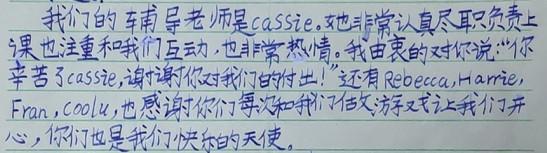 我们的辅导老师是cassie。她非常认真尽职负责上
课也注重和我们互动,也非常热情。我由衷的对你说:“你
辛苦了cassie,谢谢你对我们的付出!”还有Rebecca,Harrie,
Fran,coolu,也感谢你们每次和我们做游戏让我们开
心,你们也是我们快乐的天使。